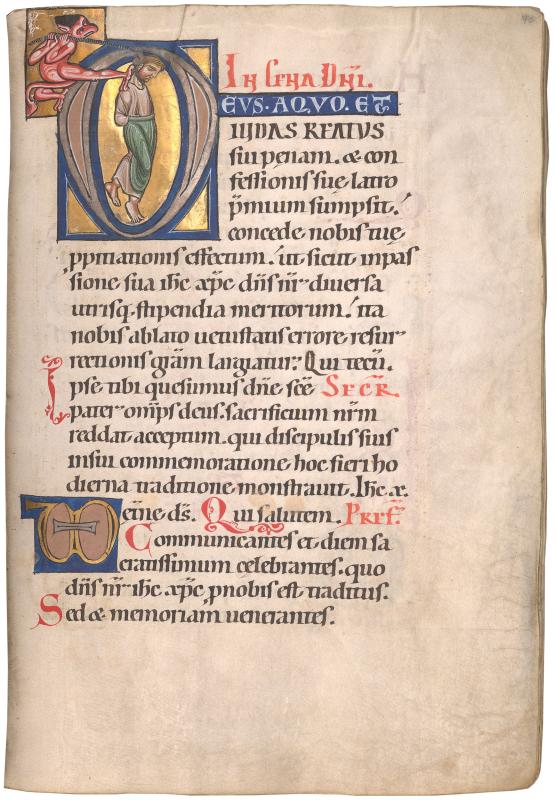 IN CENA DNI.
DEVS. A QVO. ET
IVDAS REATVS
sui penam. & con
fessionis sue latro
p̄mium sumpsit.
concede nobis tue
ppitiationis effectum. ut sicut inpas
sione sua ihc xp̄c dn̄s nr̄ diuersa
utrisq; stipendia meritorum. ita
nobis ablato uetustatis errore resur
rectionis grām largiatur. Qui tecū.
Ipse tibi quesumus dn̄e sc̄e SECR̄
pater omp̄s deus. sacrificium nr̄m
reddat acceptum. qui discipulis suis
insui commemoratione hoc fieri ho
dierna traditione monstrauit. Ihc xc
VD etn̄e ds̄. Qui salutem. PREF.
Communicantes et diem sa
cratissimum celebrantes. quo
dn̄s nr̄ ihc xp̄c pnobis est traditus.
Sed & memoriam uenerantes.